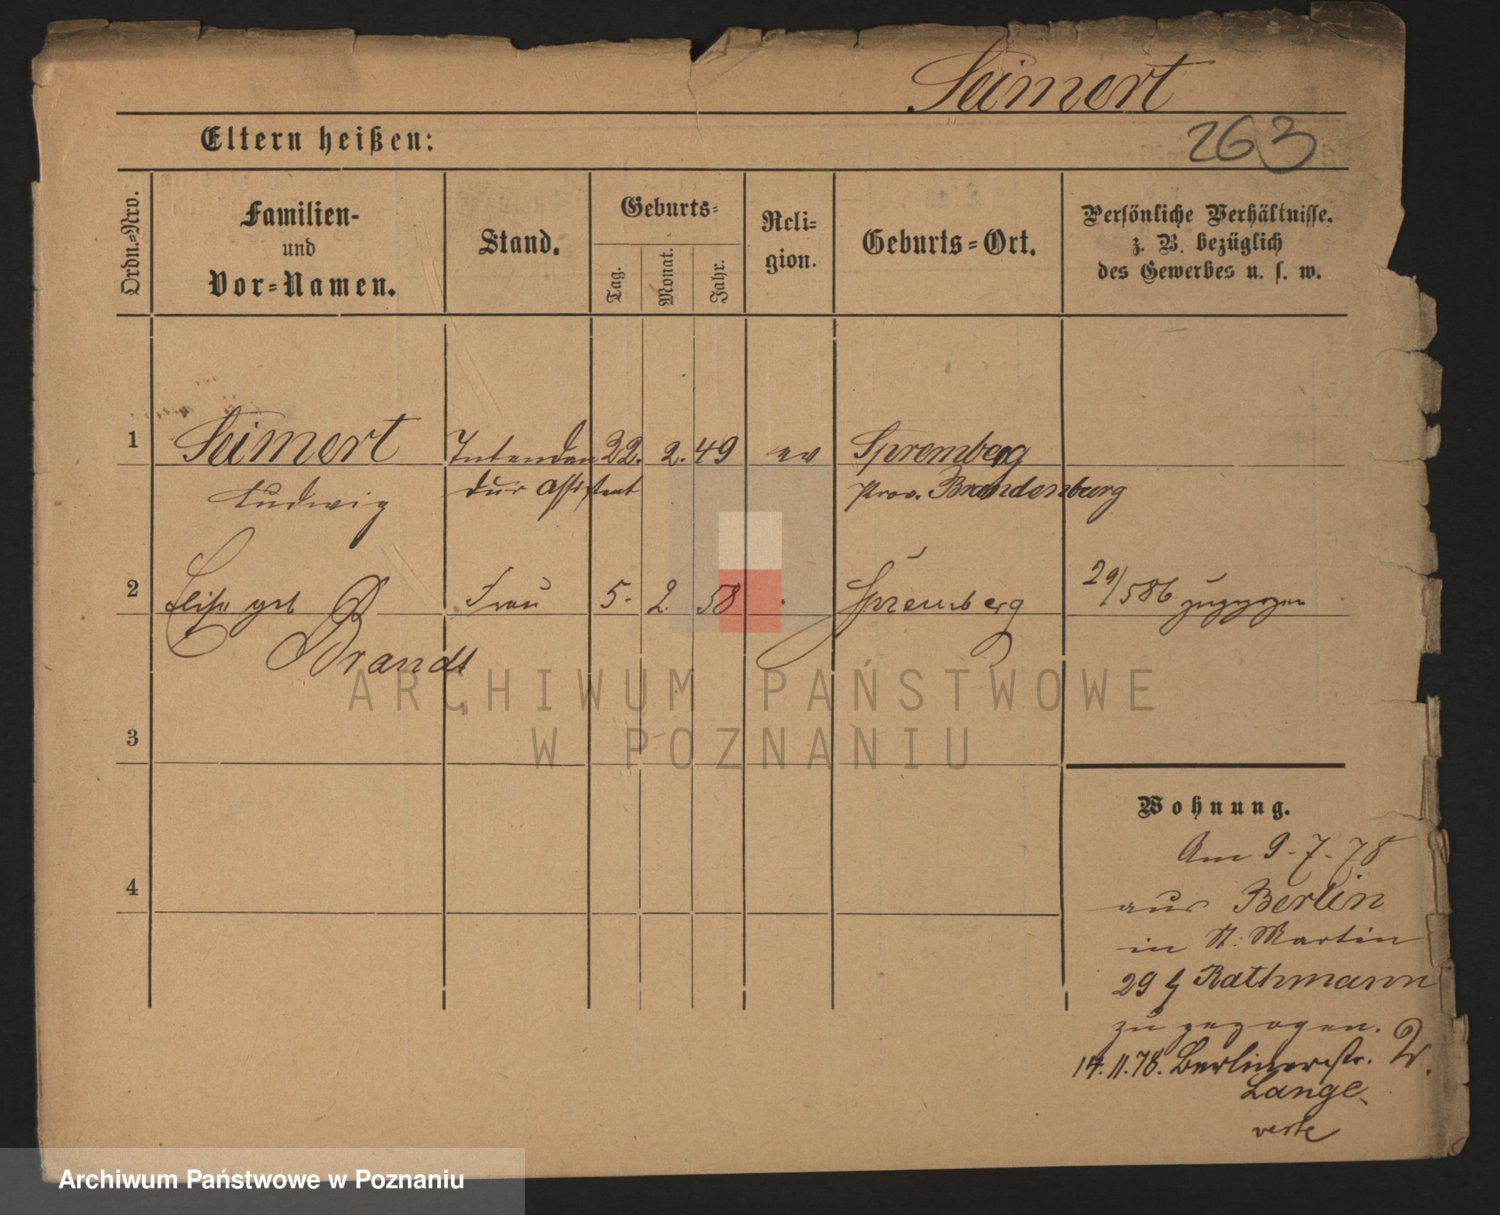 Seimert
263
Eltern heißen:
Ordn.=Nro.
Familien-
und
Vor=Namen.
Stand.
Geburts=
Tag.
Monat.
Jahr.
Reli=
gion.
Geburts=Ort.
Persönliche Verhältnisse,
z. B. bezüglich
des Gewerbes u. s. w.
1 Seimert Intendan 22. 2. 49 ev Spremberg
Ludwig tur Assistent Prov. Brandenburg
2 Elise geb Frau 5. 2. 58 Spremberg 29/586 zugezogen
Brandt
3
4
Wohnung.
Am 9.7.78
aus Berlin
in St. Martin
29 Rathmann
zu gezogen.
14.11.78. Berlinerstr. 2.
Lange
ARCHIWUM PAŃSTWOWE
W POZNANIU
Archiwum Państwowe w Poznaniu